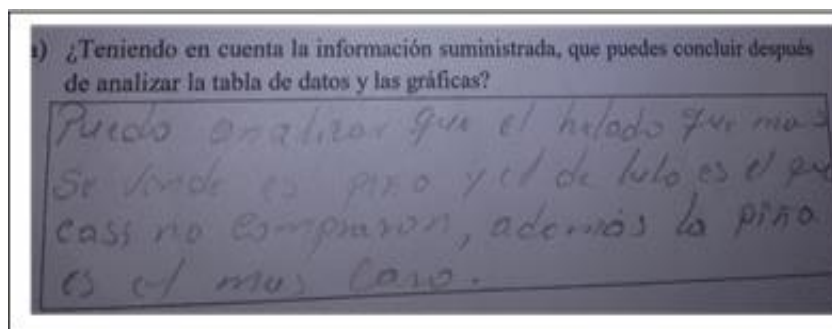 a) ¿Teniendo en cuenta la información suministrada, que puedes concluir después
de analizar la tabla de datos y las gráficas?
Puedo analizar que el helado que mas
se vende es piño y el de lulo es el que
casi no compraron, además la piño
es el mas caro.